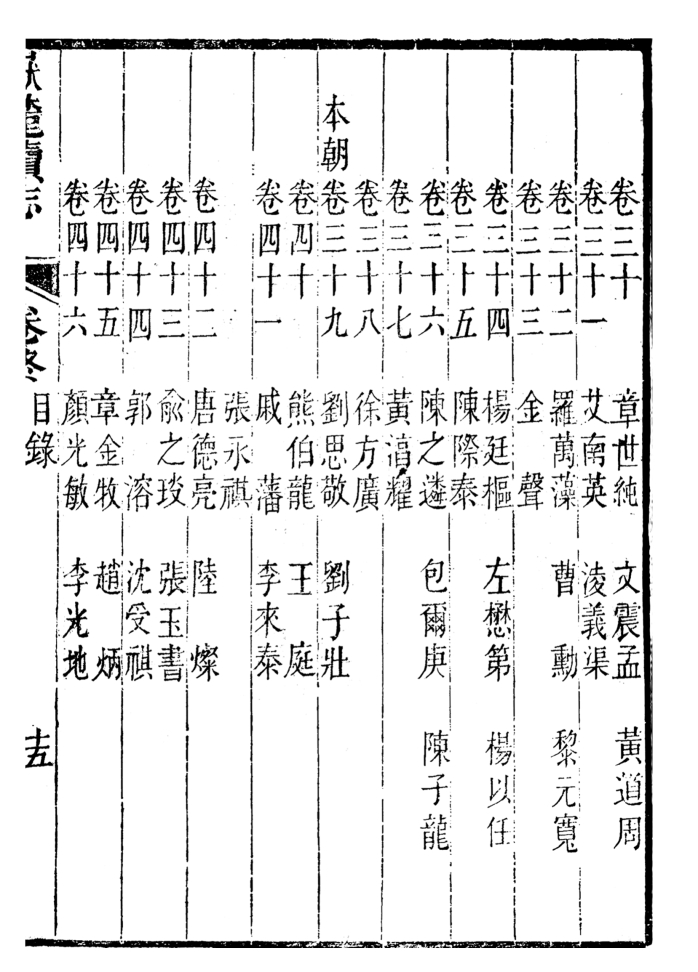 卷三十　章世純　文震孟　黃道周
卷三十一　艾南英　淩義渠
卷三十二　羅萬藻　曹勳　黎元寬
卷三十三　金聲
卷三十四　楊廷樞　左懋第　楊以任
卷三十五　陳際泰
卷三十六　陳之遴　包爾庚　陳子龍
卷三十七　黃淳耀
卷三十八　徐方廣
本朝卷三十九　劉思敬　劉子壯
卷四十　熊伯龍　王庭
卷四十一　戚藩　李來泰
張永祺
卷四十二　唐德亮　陸燦
卷四十三　兪之琰　張玉書
卷四十四　郭溶　沈受祺
卷四十五　章金牧　趙炳
卷四十六　顏光敏　李光地
續志　卷終　目錄　十五